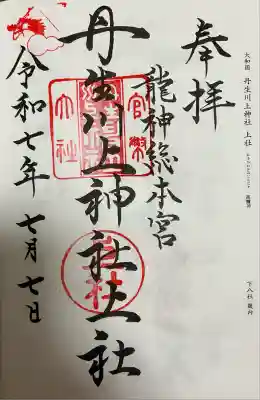 奉拝
龍神総本宮
丹生川上神社上社
令和七年 七月 七日
官幣
大社
上社
大和國 丹生川上神社 上社